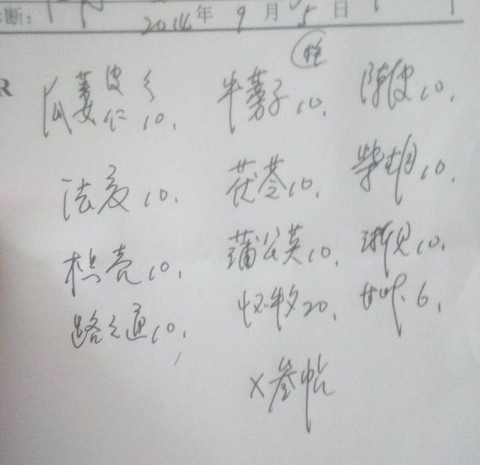 断:
2014年9月5日
R
瓜蒌皮仁10, 牛蒡子10, 陈皮10,
法夏10, 茯苓10, 柴胡10,
枳壳10, 蒲公英10, 浙贝10,
路路通10, 牡蛎20, 甘草6,
×叁帖